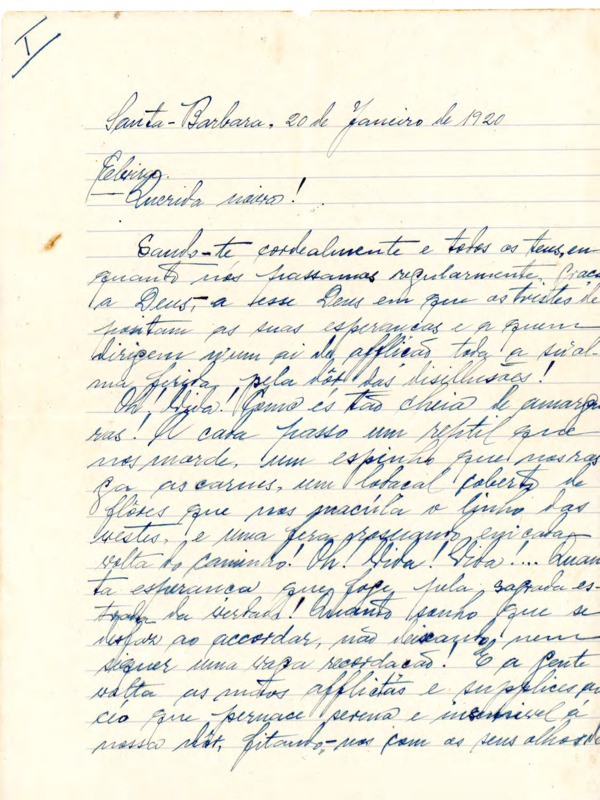 I
Santa-Barbara, 20 de Janeiro de 1920
Querida noiva!
Saudo-te cordealmente e todos os teus, en-
quanto nós passamos regularmente. Graças
a Deus, a esse Deus em que os tristes de-
pontam as suas esperanças e a quem
dirigem n'um ai de afflicão toda a su'al-
ma ferida pela dôr das disillusões!
Oh! Vida! Como és tão cheia de amargu-
ras! A cada passo um reptil que
nos morde, um espinho que nos ras-
ga as carnes, um lodaçal coberto de
flôres que nos macúla o linho das
vestes, e uma fera rosnando em cada
volta do caminho! Oh! Vida! Vida!... Quan-
ta esperança que foge pela sagrada es-
trada da verdade! Quanto sonho que se
desfaz ao accordar, não deixando nem
siquer uma vaga recordacão! E a gente
volta as mãos afflictas e supplices ao
céo que pernace serena e insensivel á
nossa dôr, fitando-nos com os seus olhos de